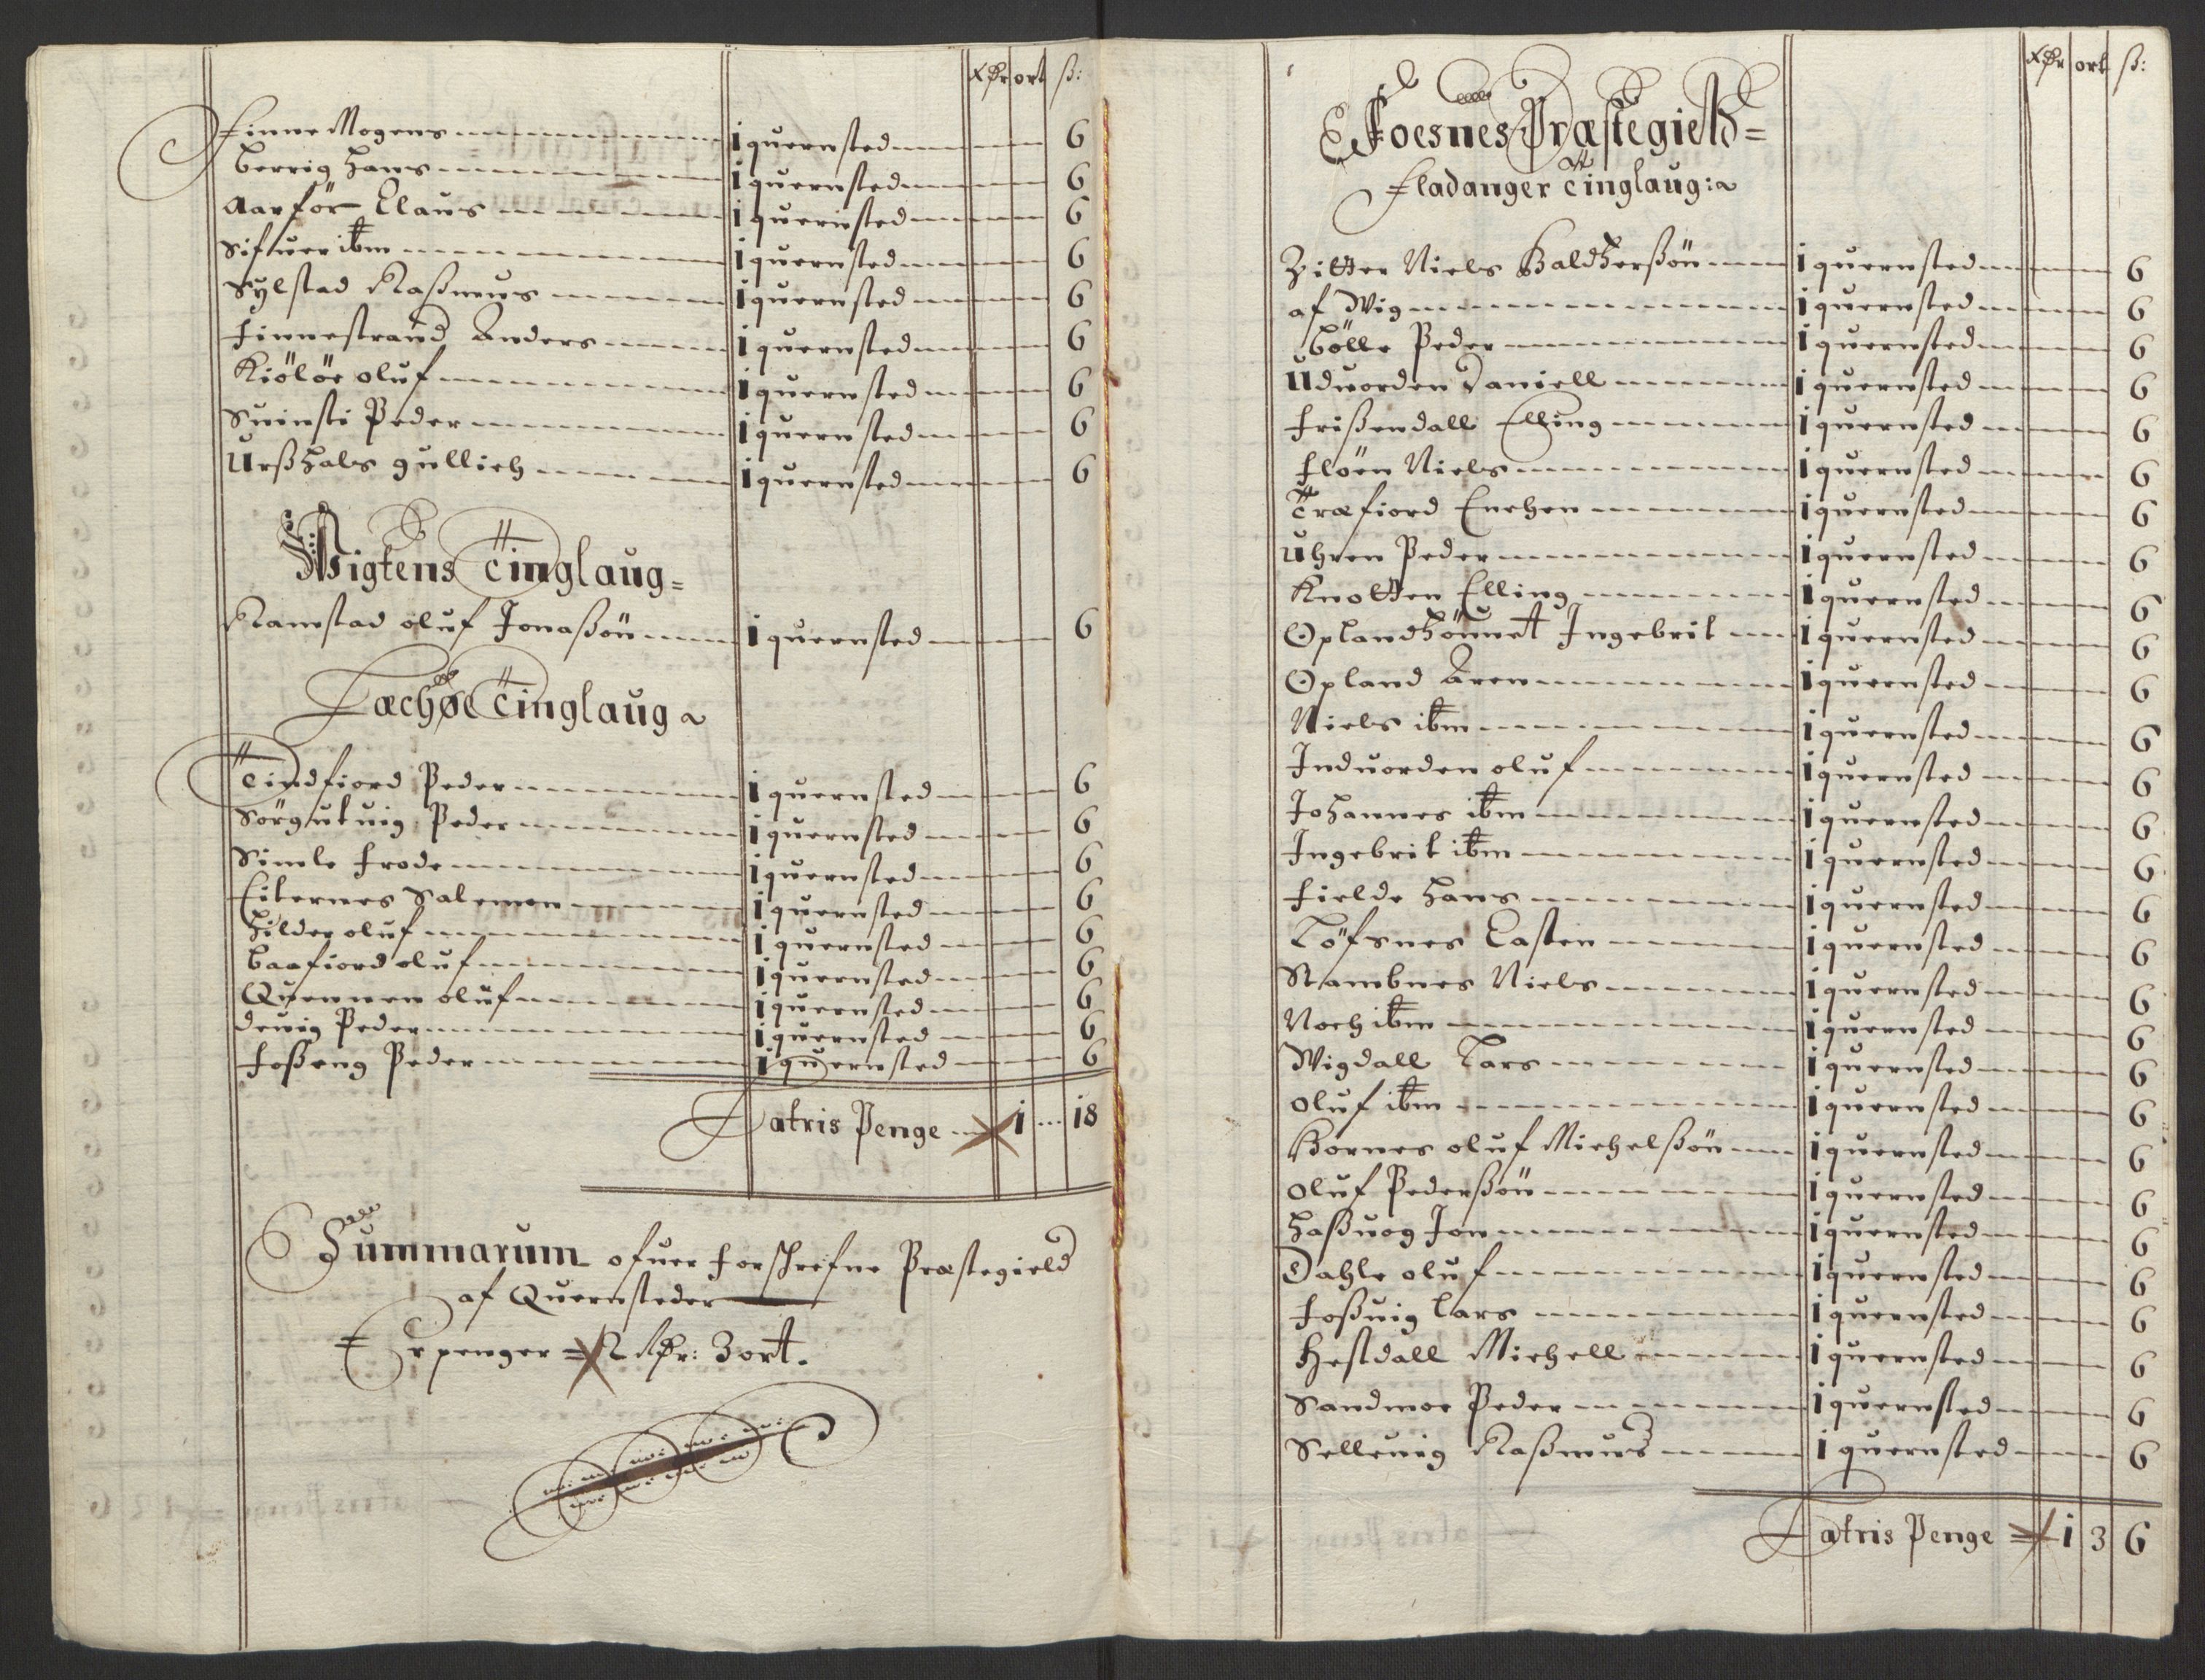 Rdr ort ß:
Finne Mogens 1 quernsted 6
Berrig Hans 1 quernsted 6
Aarför Claus 1 quernsted 6
Sifuer ibm 1 quernsted 6
Sylstad Raßmus 1 quernsted 6
Finnestrand Anders 1 quernsted 6
Kiölöe oluf 1 quernsted 6
Suinsti Peder 1 quernsted 6
Urßhals gullich 1 quernsted 6
Wigtens Tinglaug =
Ramstad oluf Jonaßön 1 quernsted 6
Læchøe Tinglaug
Tindfiord Peder 1 quernsted 6
Sörgutuig Peder 1 quernsted 6
Simle Frode 1 quernsted 6
Eiternes Salemon 1 quernsted 6
Hilder oluf 1 quernsted 6
Baafiord oluf 1 quernsted 6
Quennen oluf 1 quernsted 6
Devig Peder 1 quernsted 6
Foßeng Peder 1 quernsted 6
Latris Penge 1 ... 18
Summarum ofuer forschrefne Præstegield
af Quernsteder
Er penger = 2 Rdr: 3 ort.
Rdr ort ß:
Foesnes Præstegield =
Fladanger Tinglaug:
Zitter Niels Baldherßön 1 quernsted 6
af Wig 1 quernsted 6
Bölle Peder 1 quernsted 6
Uduorden Daniell 1 quernsted 6
Frißendall Elling 1 quernsted 6
Flöen Niels 1 quernsted 6
Træfiord Enchen 1 quernsted 6
Uhren Peder 1 quernsted 6
Knotten Elling 1 quernsted 6
Oplandhönnet Ingebrit 1 quernsted 6
Opland Aren 1 quernsted 6
Niels ibm 1 quernsted 6
Induorden oluf 1 quernsted 6
Johannes ibm 1 quernsted 6
Ingebrit ibm 1 quernsted 6
Fielde Hans 1 quernsted 6
Löfsnes Casten 1 quernsted 6
Stambnes Niels 1 quernsted 6
Noch ibm 1 quernsted 6
Wigdall Lars 1 quernsted 6
Oluf ibm 1 quernsted 6
Bornes oluf Michelßön 1 quernsted 6
Oluf Pederßön 1 quernsted 6
Haßuog Jon 1 quernsted 6
Dahle oluf 1 quernsted 6
Foßuig Lars 1 quernsted 6
Hestdall Michell 1 quernsted 6
Sandmoe Peder 1 quernsted 6
Selleuig Raßmus 1 quernsted 6
Latris Penge = 1 3 6